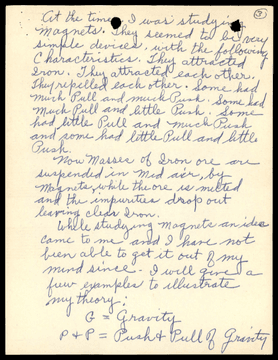 (5)
At the time I was studying
Magnets. They seemed to be very
simple devices, with the following
Characteristics. They attracted
Iron. They attracted each other.
They repelled each other. Some had
much Pull and much Push. Some had
Much Pull and little Push. Some
had little Pull and much Push
and some had little Pull and little
Push.
Now Masses of Iron ore are
suspended in Mid air, by
Magnets, while the ore is melted
and the impurities drop out
leaving clear Iron.
While studying Magnets an idea
came to me and I have not
been able to get it out of my
mind since. I will give a
few examples to illustrate
my theory:
G = Gravity
P & P = Push & Pull of Gravity